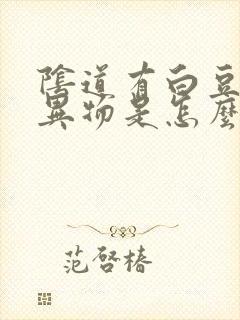 陰道有白豆
異物是怎麼
范啓椿